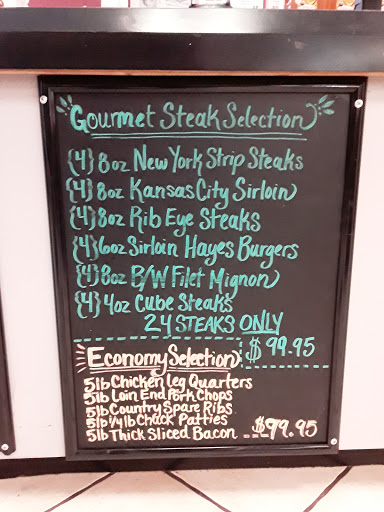 Gourmet Steak Selection
{4} 8oz New York Strip Steaks
{4} 8oz Kansas City Sirloin
{4} 8oz Rib Eye Steaks
{4} 6oz Sirloin Hayes Burgers
{4} 8oz B/W Filet Mignon
{4} 4oz Cube Steaks
24 STEAKS ONLY
$99.95
Economy Selection
5lb Chicken Leg Quarters
5lb Loin End Pork Chops
5lb Country Spare Ribs
5lb 1/4 lb Chuck Patties
5lb Thick Sliced Bacon ---- $99.95